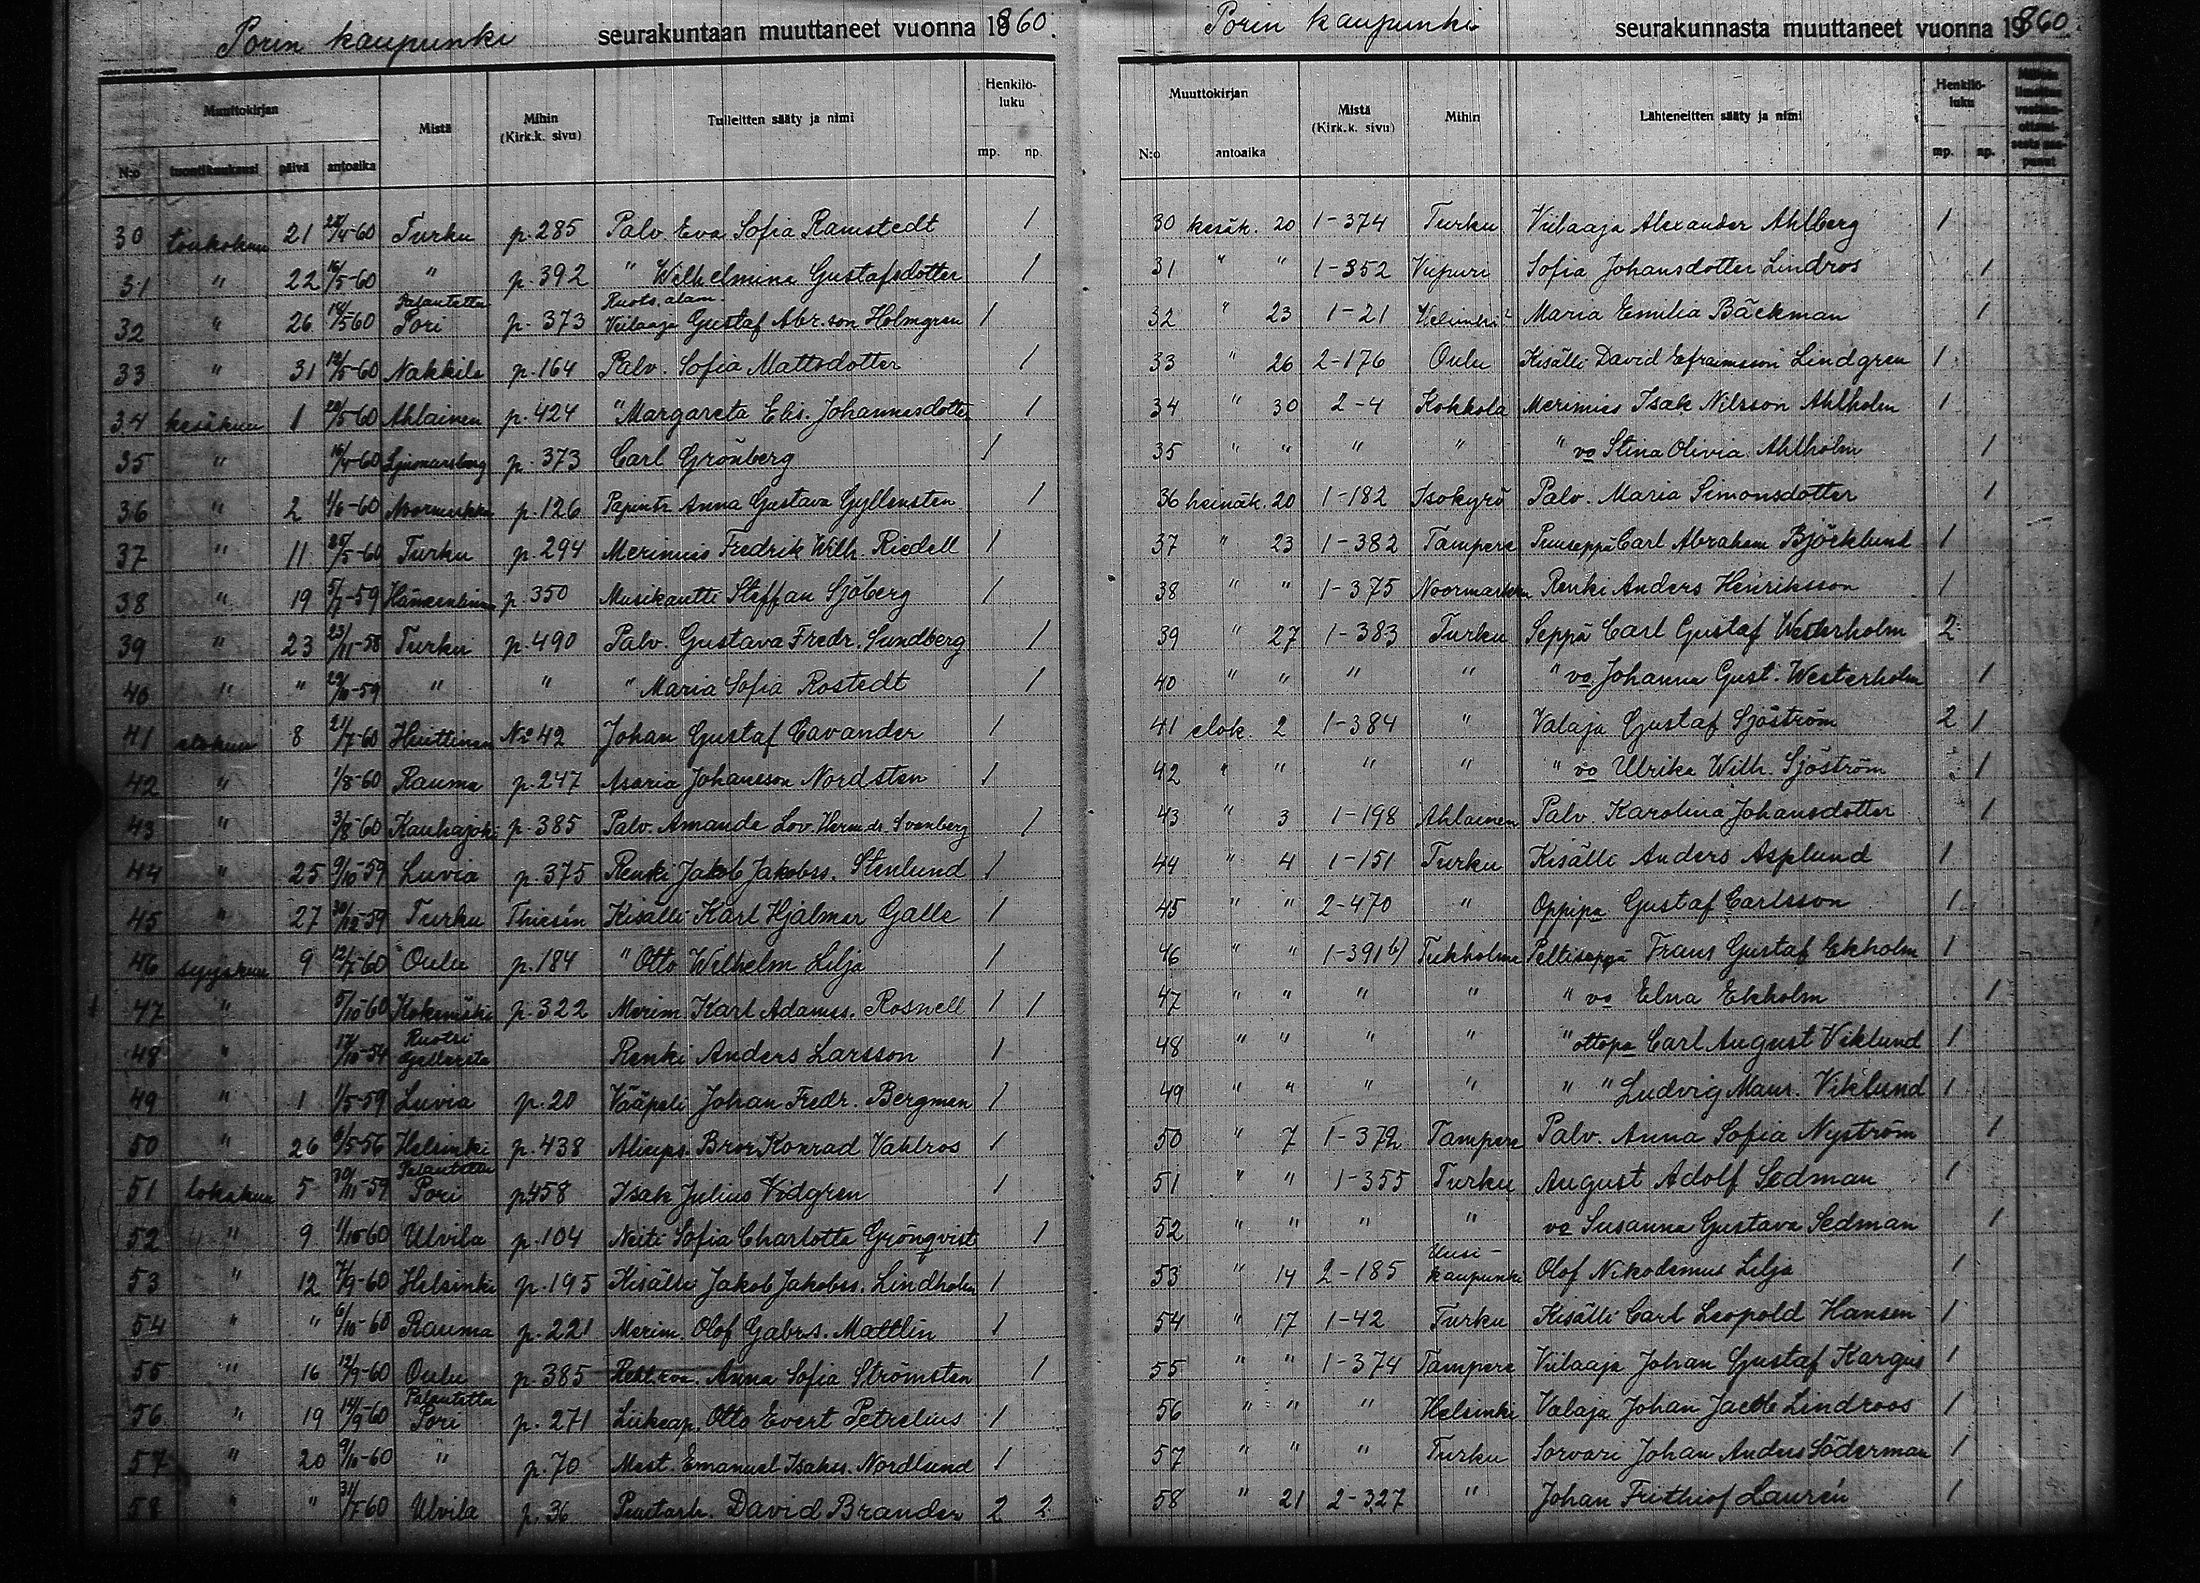 Porin kaupunki seurakuntaan muuttaneet vuonna 1860.
Muuttokirjan Mistä Mihin (Kirk.k. sivu) Tulleitten sääty ja nimi Henkilö-luku
N:o tuontikuukausi päivä antoaika mp. np.
30 toukokuu 21 28/4-60 Turku p. 285 Palv. Eva Sofia Ramstedt 1
31 " 22 16/5-60 " p. 392 " Wilhelmina Gustafsdotter 1
32 " 26 14/5-60 Palautettu Pori p. 373 Ruots. alam. Viilaaja Gustaf Abr.son Holmgren 1
33 " 31 12/5-60 Nakkila p. 164 Palv. Sofia Mattsdotter 1
34 kesäkuu 1 22/5-60 Ahlainen p. 424 " Margareta Elis. Johannesdotter 1
35 " 16/4-60 Ljusnarsberg p. 373 Carl Grönberg 1
36 " 2 1/6-60 Noormarkku p. 126 Pajmtr Anna Gustava Gyllensten 1
37 " 11 25/5-60 Turku p. 294 Merimies Fredrik Wilh. Riedell 1
38 " 19 5/7-59 Hämeenlinna p. 350 Musikantti Steffan Sjöberg 1
39 " 23 23/11-58 Turku p. 490 Palv. Gustava Fredr. Sundberg 1
40 " " 29/10-59 " " " Maria Sofia Rostedt 1
41 elokuu 8 21/7-60 Huittinen No 42 Johan Gustaf Cavander 1
42 " 1/8-60 Rauma p. 247 Asaria Johansson Nordsten 1
43 " 3/8-60 Kauhajoki p. 385 Palv. Amanda Lov. Herm.dr. Svanberg 1
44 " 25 9/10-59 Luvia p. 375 Renki Jakob Jakobss. Stenlund 1
45 " 27 30/12-59 Turku Thiesin Kisälli Karl Hjalmar Galle 1
46 syyskuu 9 12/7-60 Oulu p. 184 " Otto Wilhelm Lilja 1
47 " 5/10-60 Kokemäki p. 322 Merim. Karl Adamss. Rosnell 1 1
48 " 17/10-54 Ruotsi Renki Anders Larsson 1
49 " 1 1/5-59 Luvia p. 20 Vääpeli Johan Fredr. Bergman 1
50 " 26 6/5-56 Helsinki p. 438 Aliups. Bror Konrad Vahlros 1
51 lokakuu 5 30/11-59 Palautettu Pori p 458 Isak Julius Vidgren 1
52 " 9 1/10-60 Ulvila p. 104 Neiti Sofia Charlotta Grönqvist 1
53 " 12 7/9-60 Helsinki p. 195 Kisälli Jakob Jakobss. Lindholm 1
54 " " 6/10-60 Rauma p. 221 Merim. Olof Gabr.s. Mattlin 1
55 " 16 12/9-60 Oulu p. 385 Anna Sofia Strömsten 1
56 " 19 14/9-60 Palautettu Pori p. 271 Liikeap. Otto Evert Petrelius 1
57 " 20 9/10-60 " p. 70 Mest. Emanuel Isakss. Nordlund 1
58 " " 31/7-60 Ulvila p. 36 Puutarh. David Brander 2 2
Porin kaupunki seurakunnasta muuttaneet vuonna 1860.
Muuttokirjan Mistä (Kirk.k. sivu) Mihin Lähteneitten sääty ja nimi Henkilö-luku
N:o antoaika mp. np.
30 kesäk. 20 1-374 Turku Viilaaja Alexander Ahlberg 1
31 " " 1-352 Viipuri Sofia Johansdotter Lindros 1
32 " 23 1-21 Helsinki Maria Emilia Bäckman 1
33 " 26 2-176 Oulu Kisälli David Efraimsson Lindgren 1
34 " 30 2-4 Kokkola Merimies Isak Nilsson Ahlholm 1
35 " " " " " vo Stina Olivia Ahlholm 1
36 heinäk. 20 1-182 Isokyrö Palv. Maria Simonsdotter 1
37 " 23 1-382 Tampere Puuseppä Carl Abraham Björklund 1
38 " " 1-375 Noormarkku Renki Anders Henriksson 1
39 " 27 1-383 Turku Seppä Carl Gustaf Westerholm 2
40 " " " " " vo Johanna Gust. Westerholm 1
41 elok. 2 1-384 " Valaja Gustaf Sjöström 2 1
42 " " " " " vo Ulrika Wilh. Sjöström 1
43 " 3 1-198 Ahlainen Palv. Karolina Johansdotter 1
44 " 4 1-151 Turku Kisälli Anders Asplund 1
45 " " 2-470 " Oppipa Gustaf Carlsson 1
46 " " 1-391 b) Tukholma Peltiseppä Frans Gustaf Ekholm 1
47 " " " " " vo Elna Ekholm 1
48 " " " " " ottopa Carl August Viklund 1
49 " " " " " " Ludvig Maur. Viklund 1
50 " 7 1-372 Tampere Palv. Anna Sofia Nyström 1
51 " " 1-355 Turku August Adolf Sedman 1
52 " " " " vo Susanna Gustava Sedman 1
53 " 14 2-185 Uusi-kaupunki Olof Nikodemus Lilja 1
54 " 17 1-42 Turku Kisälli Carl Leopold Hansen 1
55 " " 1-374 Tampere Viilaaja Johan Gustaf Kargus 1
56 " " " Helsinki Valaja Johan Jacob Lindroos 1
57 " " " Turku Sorvari Johan Anders Söderman 1
58 " 21 2-327 " Johan Frithiof Laurén 1